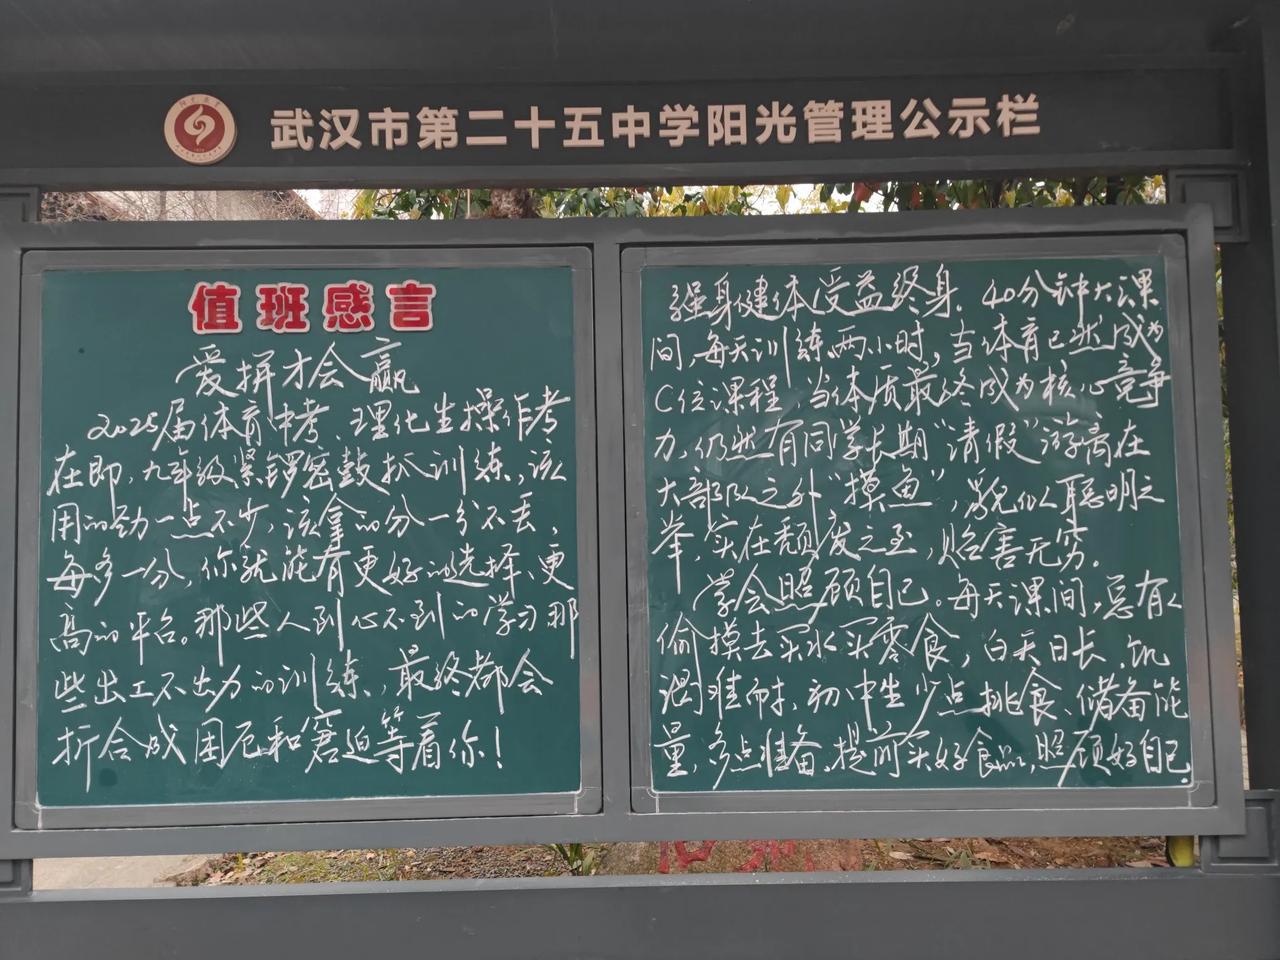 武汉市第二十五中学阳光管理公示栏
值班感言
爱拼才会赢
2025届体育中考、理化生操作考
在即,九年级紧锣密鼓抓训练,该
用的劲一点不少,该拿的分一分不丢,
每多一分,你就能有更好的选择、更
高的平台。那些人到心不到的学习那
些出工不出力的训练,最终都会
折合成困厄和窘迫等着你!
强身健体受益终身.40分钟大课
间,每天训练两小时,当体育已然成为
C位课程,当体质最终成为核心竞争
力,仍然有同学长期“请假”游离在
大部队之外“摸鱼”,貌似聪明之
举,实在颓废之至,贻害无穷.
学会照顾自己。每天课间,总有人
偷摸去买水买零食,白天日长,饥
渴难耐,初中生少点挑食、储备能
量,多点准备,提前买好食品,照顾好自己.